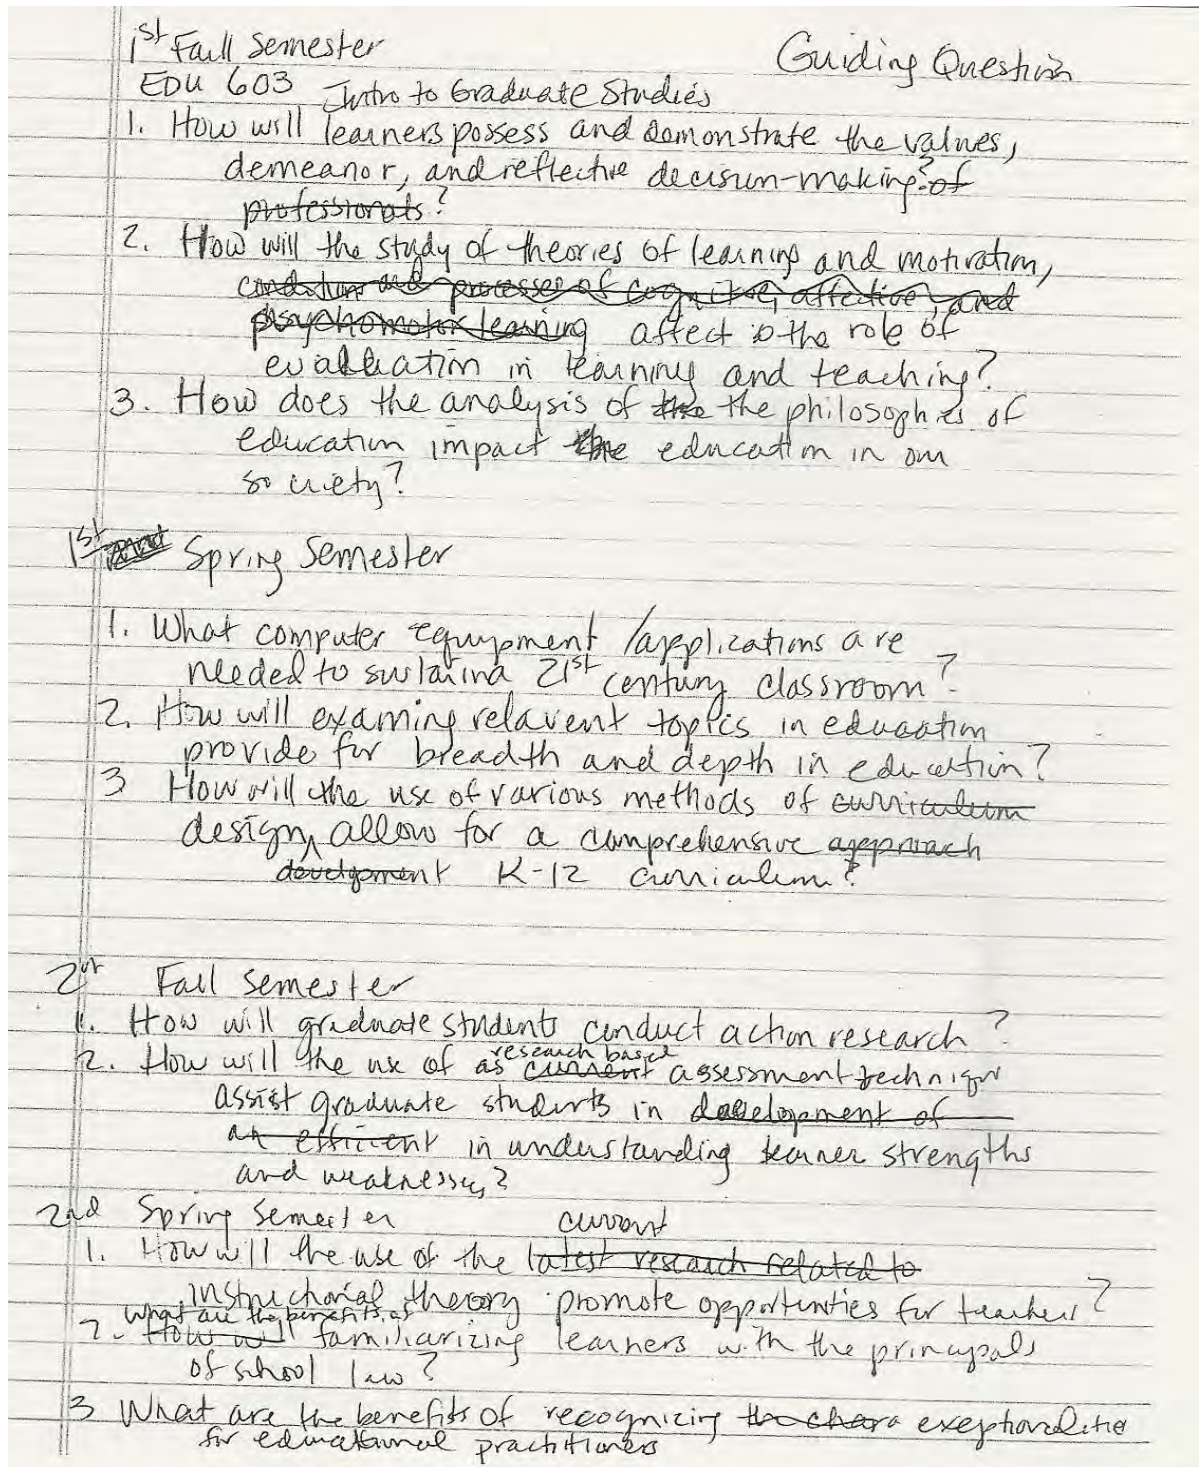 1st Fall Semester
Guiding Question
EDU 603 Intro to Graduate Studies
1. How will learners possess and demonstrate the values,
demeanor, and reflective decision-making? of
professionals?
2. How will the study of theories of learning and motivation,
condition and processes of cognitive, affective, and
psychomotor learning affect the role of
evaluation in learning and teaching?
3. How does the analysis of the the philosophies of
education impact the education in our
society?
1st 2nd Spring Semester
1. What computer equipment /applications are
needed to sustain a 21st century classroom?
2. How will examing relavent topics in education
provide for breadth and depth in education?
3 How will the use of various methods of curriculum
design, allow for a comprehensive approach
development K-12 curriculum?
2nd Fall Semester
1. How will graduate students conduct action research?
research based
2. How will the use of as current assessment techniqu
assist graduate students in development of
an efficient in understanding learner strengths
and weaknesses?
2nd Spring Semester
current
1. How will the use of the latest research related to
instructional theory promote opportunities for teachers?
What are the benefits of
2. How will familiarizing learners with the principals
of school law?
3 What are the benefits of recognizing the chara exeptionalities
for educational practitioners